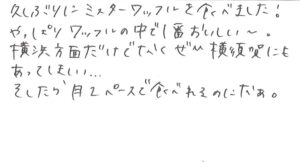 久しぶりにミスターワッフルを食べました!
やっぱりワッフルの中で1番おいしい〜。
横浜方面だけでなくぜひ横須賀にも
あってほしい…
そしたら月2ペースで食べれるのになぁ。